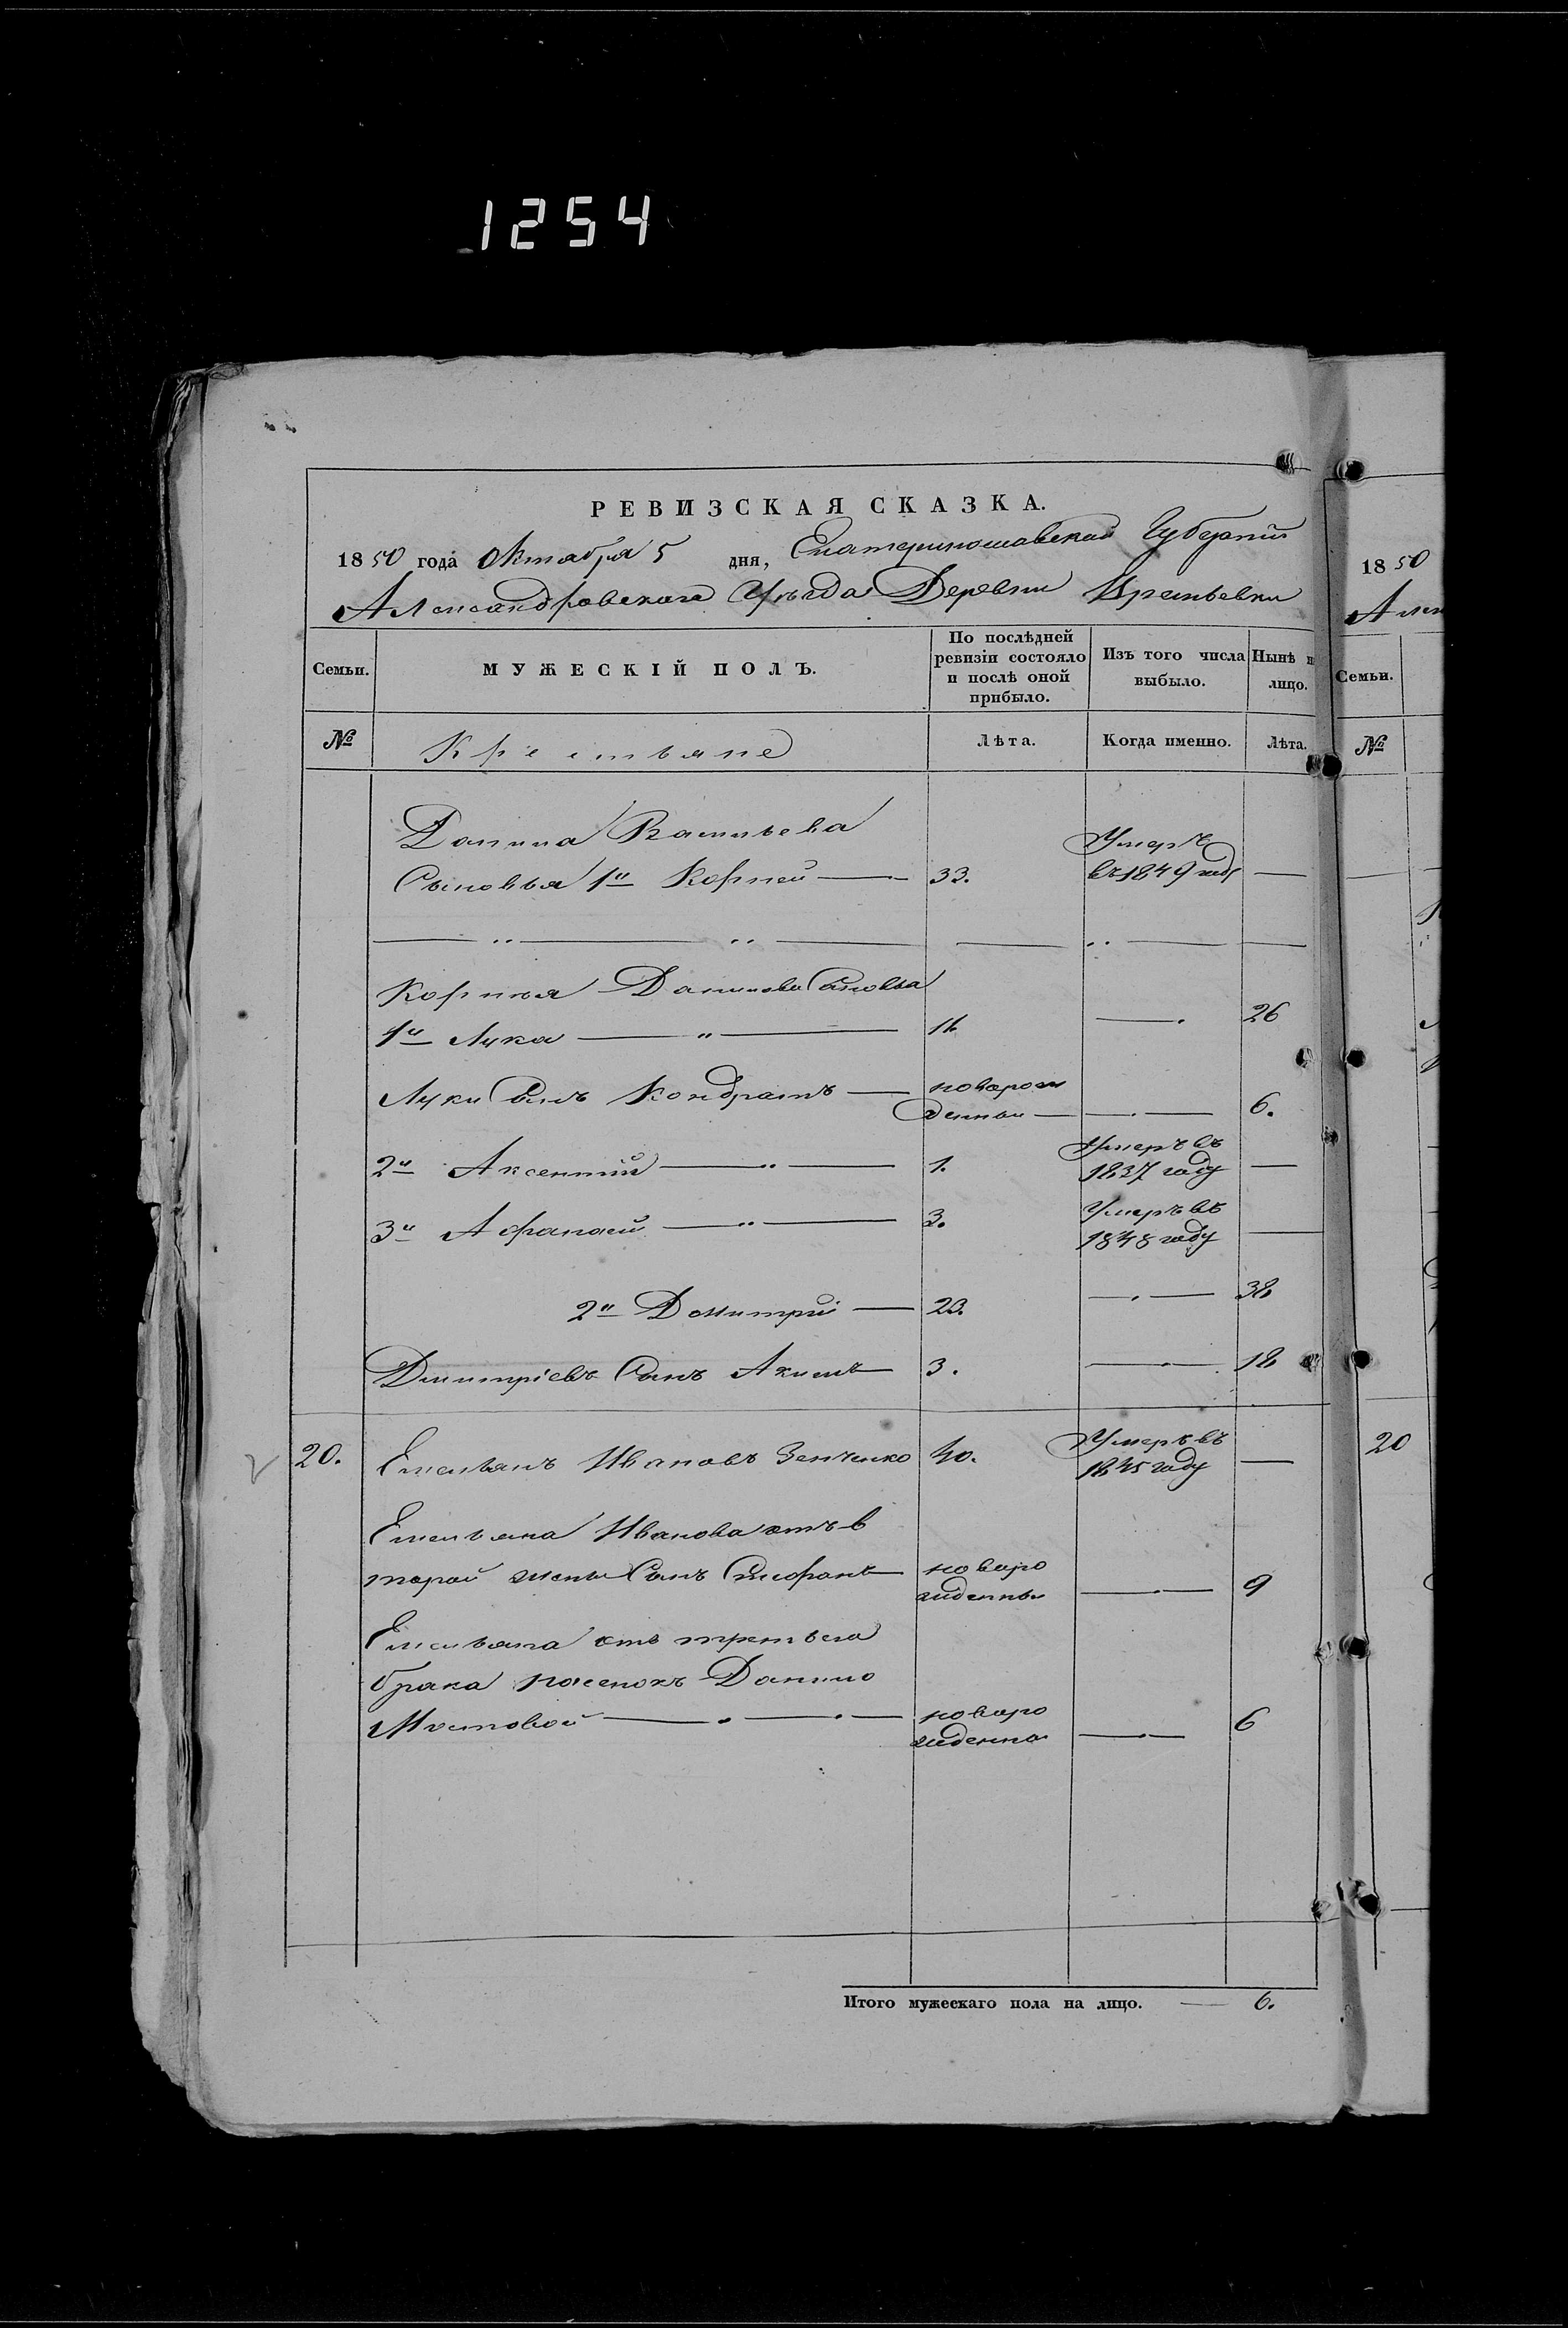 1254
РЕВИЗСКАЯ СКАЗКА.
1850 года Октября 5 дня, Екатеринославской Губернии
Александровского Уезда Деревни
Семьи.
МУЖЕСКІЙ ПОЛЪ.
По послѣдней ревизіи состояло и послѣ оной прибыло.
Изъ того числа выбыло.
Нынѣ н
лицо.
№
Крестьяне
Лѣта.
Когда именно.
Лѣта.
Данила Васильева
Сыновья 1й Корней — 33. Умеръ въ 1849 году —
Корнея Данилова Сыновья
1й Лука — 11 — 26
Луки Сынъ Кондратъ — новорож денный — 6.
2й Аксентий — 1. Умеръ въ 1837 году —
3й Афанасий — 3. Умеръ въ 1848 году —
2й Дмитрий — 23. — 38
Дмитріевъ Сынъ Акимъ 3. — 18
20. Емельянъ Ивановъ Зенченко 40. Умеръ въ 1845 году —
Емельяна Иванова отъ в
торой жены Сынъ новоро жденный — 9
Емельяна отъ третьего
брака пасенокъ Данило
Мостовой — новоро жденна — 6
Итого мужескаго пола на лицо. — 6.
1850
Семьи.
№
20